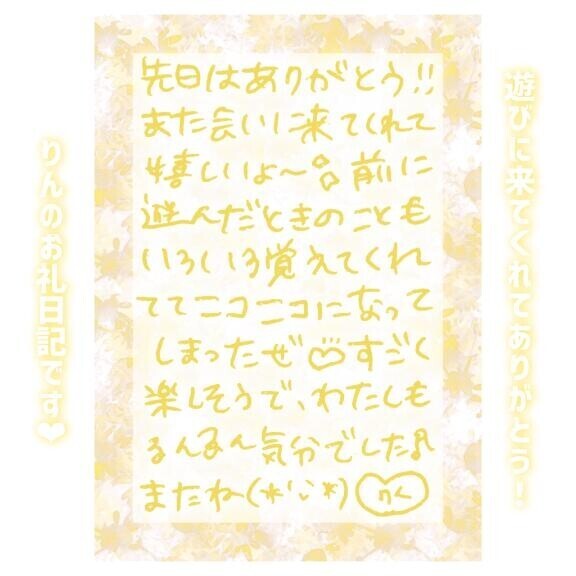 遊びに来てくれてありがとう！
先日はありがとう!!
また会いに来てくれて
嬉しいよ〜 前に
遊んだときのことも
いろいろ覚えてくれ
ててニコニコになって
しまったぜ♡すごく
楽しそうで、わたしも
るんるん気分でした♬
またね(*'ω'*)
りんのお礼日記です❤